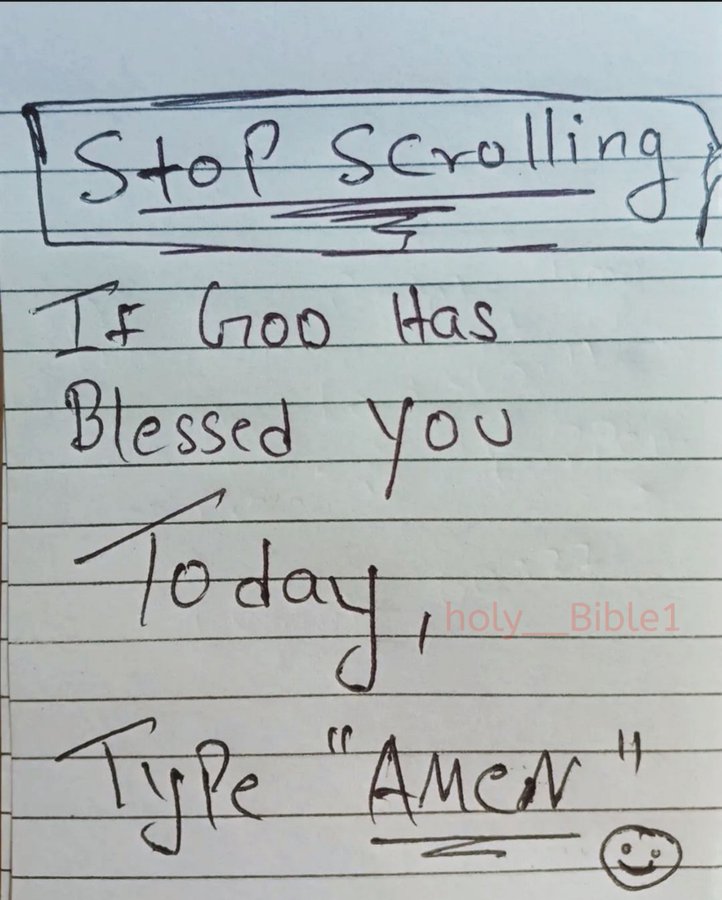 Stop Scrolling
If God Has
Blessed you
Today,
holy__Bible1
Type "AMeN"